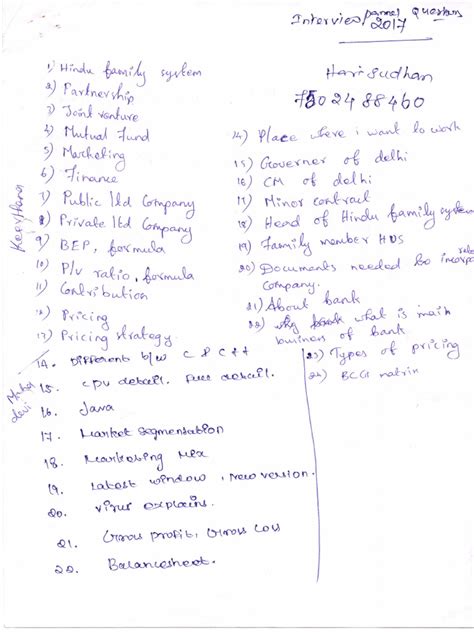 Interview pannel Question
2017
Hari Sudhan
7502488460
1) Hindu family system
2) Partnership
3) Joint venture
4) Mutual Fund
5) Marketing
6) Finance
7) Public ltd Company
8) Private ltd Company
9) BEP, formula
10) P/v ratio, formula
11) Contribution
12) Pricing
13) Pricing strategy
Keerthana
14. Different b/w C & C++
15. CPU detail. Full detail.
16. Java
17. Market segmentation
18. Marketing Mix
19. Latest window, new version.
20. virus explains.
21. Gross profit, Gross Loss
22. Balancesheet.
Maha devi
14) Place where i want to work
15) Governer of delhi
16) CM of delhi
17) Minor contract
18) Head of Hindu family system
19) Family member HUS
20) Documents needed to incorp
Company.
21) About bank
22) what is main
business of bank
23) Types of pricing
24) BCG matrix